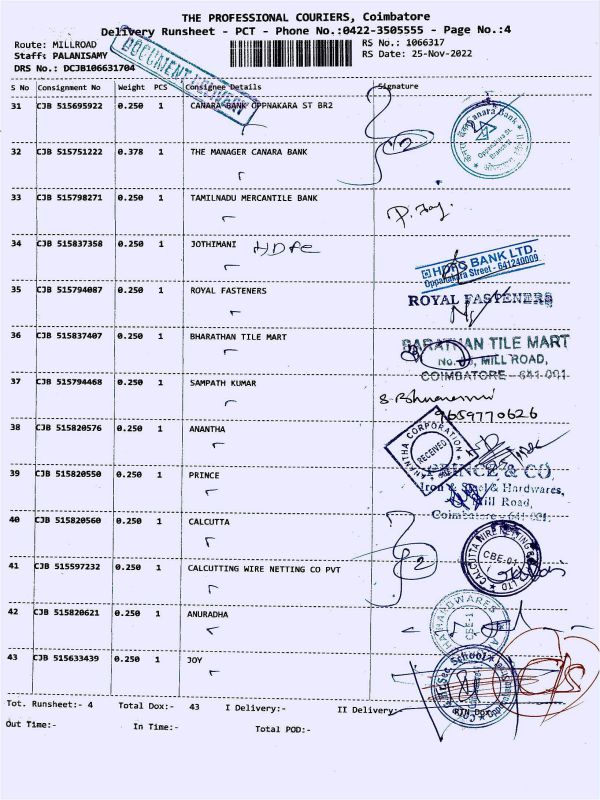 THE PROFESSIONAL COURIERS, Coimbatore
Delivery Runsheet - PCT - Phone No.:0422-3505555 - Page No.:4
Route: MILLROAD RS No.: 1066317
Staff: PALANISAMY RS Date: 25-Nov-2022
DRS No.: DCJB106631704
S No Consignment No Weight PCS Consignee Details Signature
31 CJB 515695922 0.250 1 CANARA BANK OPPNAKARA ST BR2
Canara Bank
Oppanakara St.
32 CJB 515751222 0.378 1 THE MANAGER CANARA BANK
33 CJB 515798271 0.250 1 TAMILNADU MERCANTILE BANK
34 CJB 515837358 0.250 1 JOTHIMANI HDFC
HDFC BANK LTD.
Oppanakara Street - 641240009
35 CJB 515794087 0.250 1 ROYAL FASTENERS
ROYAL FASTENERS
36 CJB 515837407 0.250 1 BHARATHAN TILE MART
BARATHAN TILE MART
MILL ROAD,
COIMBATORE - 641 001
37 CJB 515794468 0.250 1 SAMPATH KUMAR
9659770626
38 CJB 515820576 0.250 1 ANANTHA
ANANTHA CORPORATION
RECEIVED
39 CJB 515820550 0.250 1 PRINCE
PRINCE & CO,
Iron & Steel & Hardwares,
Mill Road,
Coimbatore - 641 001.
40 CJB 515820560 0.250 1 CALCUTTA
41 CJB 515597232 0.250 1 CALCUTTING WIRE NETTING CO PVT
CALCUTTA WIRE NETTING
CBE-01
LTD
42 CJB 515820621 0.250 1 ANURADHA
HARDWARES
CBE-1
43 CJB 515633439 0.250 1 JOY
Hr.Sec. School
Tot. Runsheet:- 4 Total Dox:- 43 I Delivery:- II Delivery:- RTN Dox:-
Out Time:- In Time:- Total POD:-